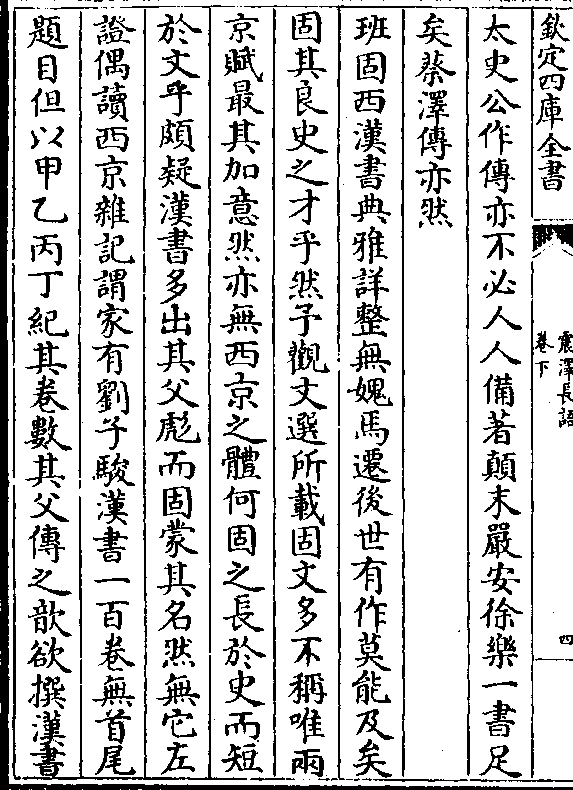 欽定四庫全書
震澤長語
卷下
四
太史公作傳亦不必人人備著顛末嚴安徐樂一書足
矣蔡澤傳亦然
班固西漢書典雅詳整無媿馬遷後世有作莫能及矣
固其良史之才乎然予觀文選所載固文多不稱唯兩
京賦最其加意然亦無西京之體何固之長於史而短
於文乎頗疑漢書多出其父彪而固蒙其名然無它左
證偶讀西京雜記謂家有劉子駿漢書一百卷無首尾
題目但以甲乙丙丁紀其卷數其父傳之歆欲撰漢書